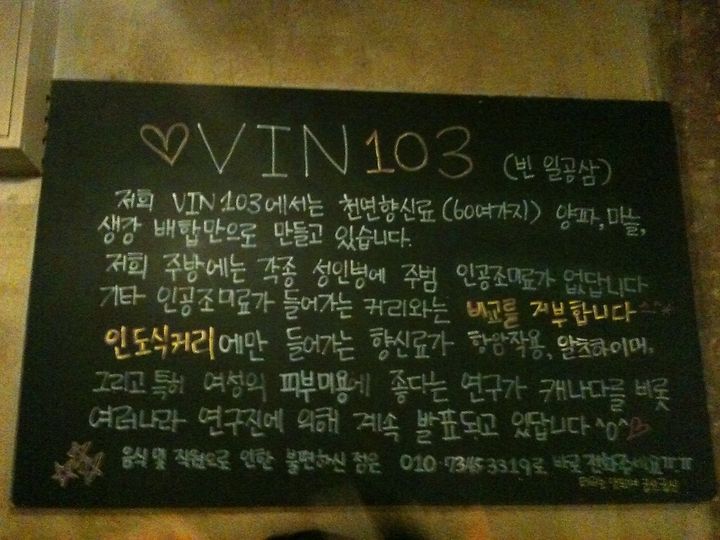 ♡VIN 103 (빈 일공삼)
저희 VIN 103에서는 천연향신료 (60여가지) 양파, 마늘,
생강 배합만으로 만들고 있습니다.
저희 주방에는 각종 성인병에 주범 인공조미료가 없답니다
기타 인공조미료가 들어가는 커리와는 비교를 거부합니다 ^^*
인도식커리에만 들어가는 향신료가 항암작용, 알츠하이머,
그리고 특히 여성의 피부미용에 좋다는 연구가 캐나다를 비롯
여러나라 연구진에 의해 계속 발표되고 있답니다 ^o^♡
음식 및 직원으로 인한 불편하신 점은 010-7365 3319로 바로 전화주세요ㅠㅠ